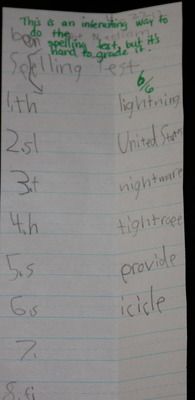 This is an interesting way to
do the
spelling test, but it's
hard to grade it.
Spelling Test
6/6
1. th lightning
2. sl United States
3. t nightmare
4. h tightrope
5. s provide
6. s icicle
7.
8. fi